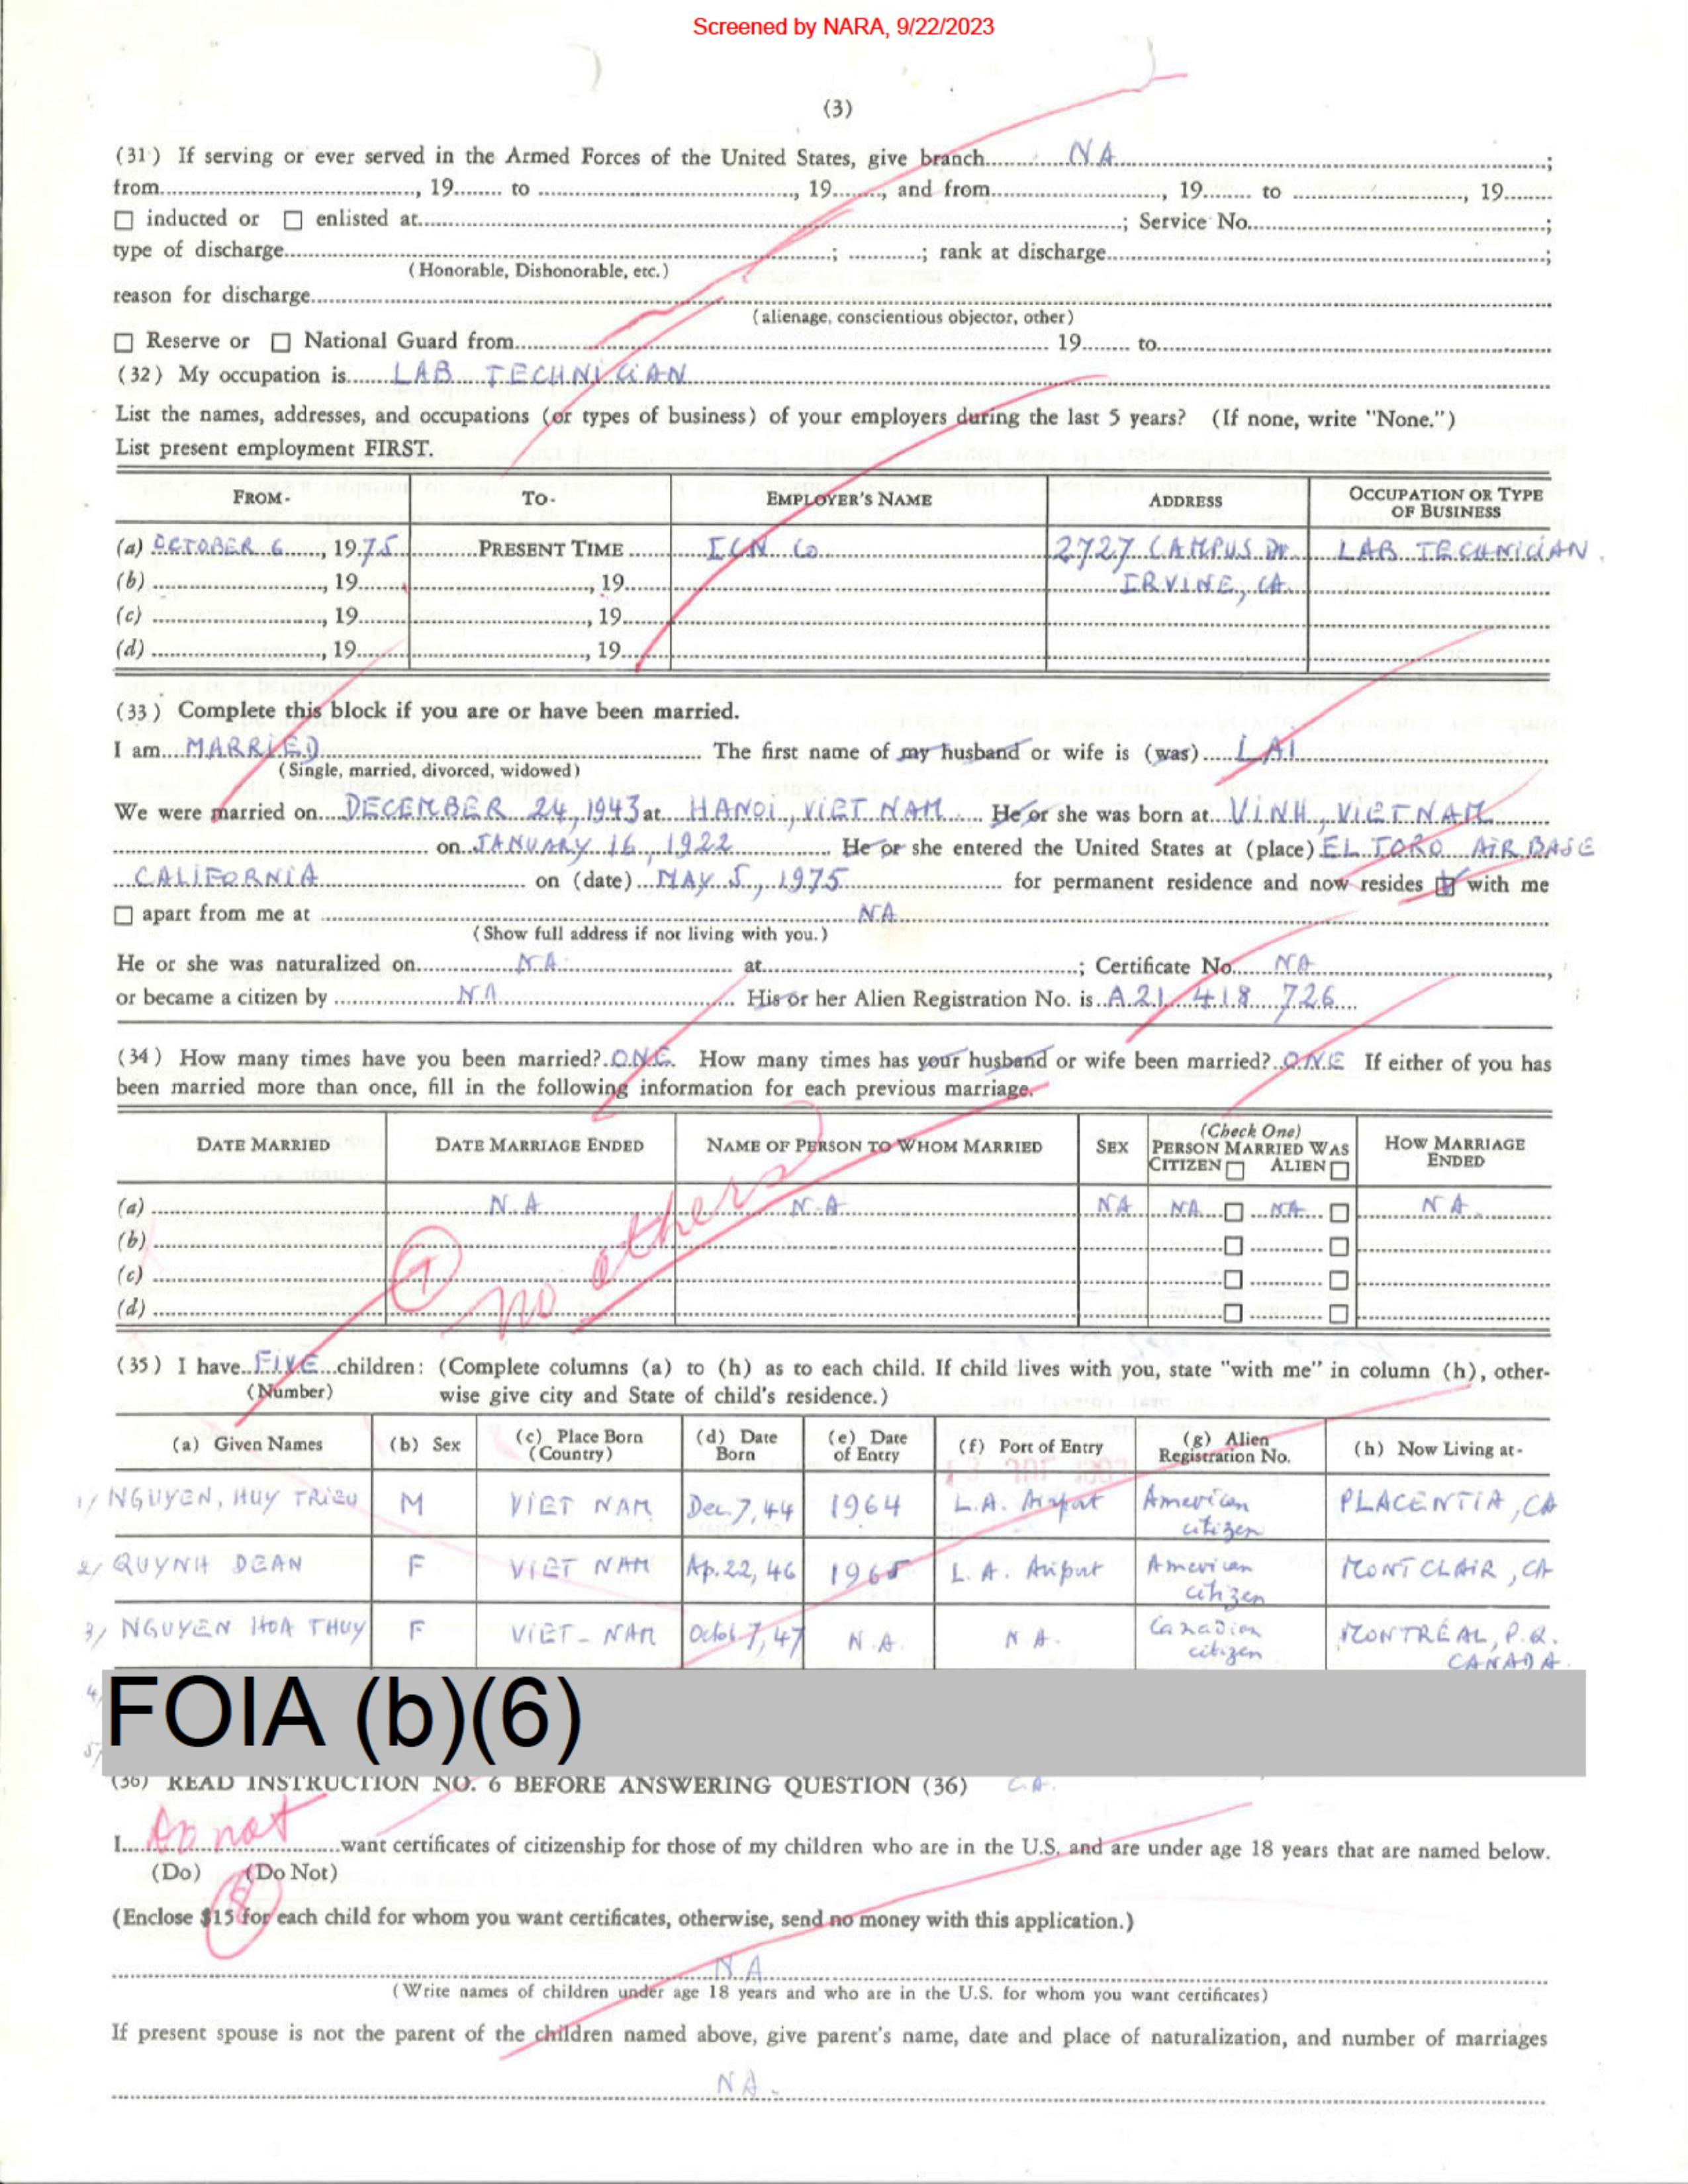 Screened by NARA, 9/22/2023
(3)
(31) If serving or ever served in the Armed Forces of the United States, give branch NA ;
from , 19 to , 19 , and from , 19 to , 19
☐ inducted or ☐ enlisted at ; Service No. ;
type of discharge ; ; rank at discharge ;
(Honorable, Dishonorable, etc.)
reason for discharge
(alienage, conscientious objector, other)
☐ Reserve or ☐ National Guard from 19 to
(32) My occupation is LAB TECHNICIAN
List the names, addresses, and occupations (or types of business) of your employers during the last 5 years? (If none, write "None.")
List present employment FIRST.
FROM- TO- EMPLOYER'S NAME ADDRESS OCCUPATION OR TYPE OF BUSINESS
(a) OCTOBER 6, 1975 PRESENT TIME ICN Co 2727 CAMPUS DR LAB TECHNICIAN.
(b) , 19 , 19 IRVINE, CA.
(c) , 19 , 19
(d) , 19 , 19
(33) Complete this block if you are or have been married.
I am MARRIED The first name of my husband or wife is (was) LAI
(Single, married, divorced, widowed)
We were married on DECEMBER 24, 1943 at HANOI, VIET NAM He or she was born at VINH, VIETNAM
on JANUARY 16, 1922 He or she entered the United States at (place) EL TORO AIR BASE
CALIFORNIA on (date) MAY 5, 1975 for permanent residence and now resides ☑ with me
☐ apart from me at NA
(Show full address if not living with you.)
He or she was naturalized on NA at ; Certificate No. NA ,
or became a citizen by NA His or her Alien Registration No. is A 21 418 726
(34) How many times have you been married? ONE How many times has your husband or wife been married? ONE If either of you has
been married more than once, fill in the following information for each previous marriage.
DATE MARRIED DATE MARRIAGE ENDED NAME OF PERSON TO WHOM MARRIED SEX (Check One) PERSON MARRIED WAS CITIZEN ☐ ALIEN ☐ HOW MARRIAGE ENDED
(a) N.A N.A NA NA ☐ NA ☐ NA
(b) ☐ ☐
(c) ☐ ☐
(d) ☐ ☐
7 no others
(35) I have FIVE children: (Complete columns (a) to (h) as to each child. If child lives with you, state "with me" in column (h), other-
(Number) wise give city and State of child's residence.)
(a) Given Names (b) Sex (c) Place Born (Country) (d) Date Born (e) Date of Entry (f) Port of Entry (g) Alien Registration No. (h) Now Living at-
1/ NGUYEN, HUY TRIEU M VIET NAM Dec. 7, 44 1964 L.A. Airport American citizen PLACENTIA, CA
2/ QUYNH DEAN F VIET NAM Ap. 22, 46 1965 L.A. Airport American citizen MONTCLAIR, CA
3/ NGUYEN HOA THUY F VIET-NAM Octob 7, 47 N.A. N A. Canadian citizen MONTREAL, P.Q. CANADA
4/
FOIA (b)(6)
5/
(36) READ INSTRUCTION NO. 6 BEFORE ANSWERING QUESTION (36) CA.
I Do not want certificates of citizenship for those of my children who are in the U.S. and are under age 18 years that are named below.
(Do) (Do Not)
8
(Enclose $15 for each child for whom you want certificates, otherwise, send no money with this application.)
N.A
(Write names of children under age 18 years and who are in the U.S. for whom you want certificates)
If present spouse is not the parent of the children named above, give parent's name, date and place of naturalization, and number of marriages
NA.